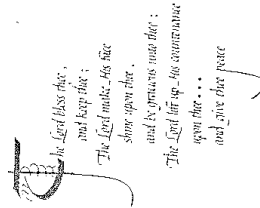 The Lord bless thee,
and keep thee;
The Lord make His face
shine upon thee,
and be gracious unto thee;
The Lord lift up His countenance
upon thee...
and give thee peace